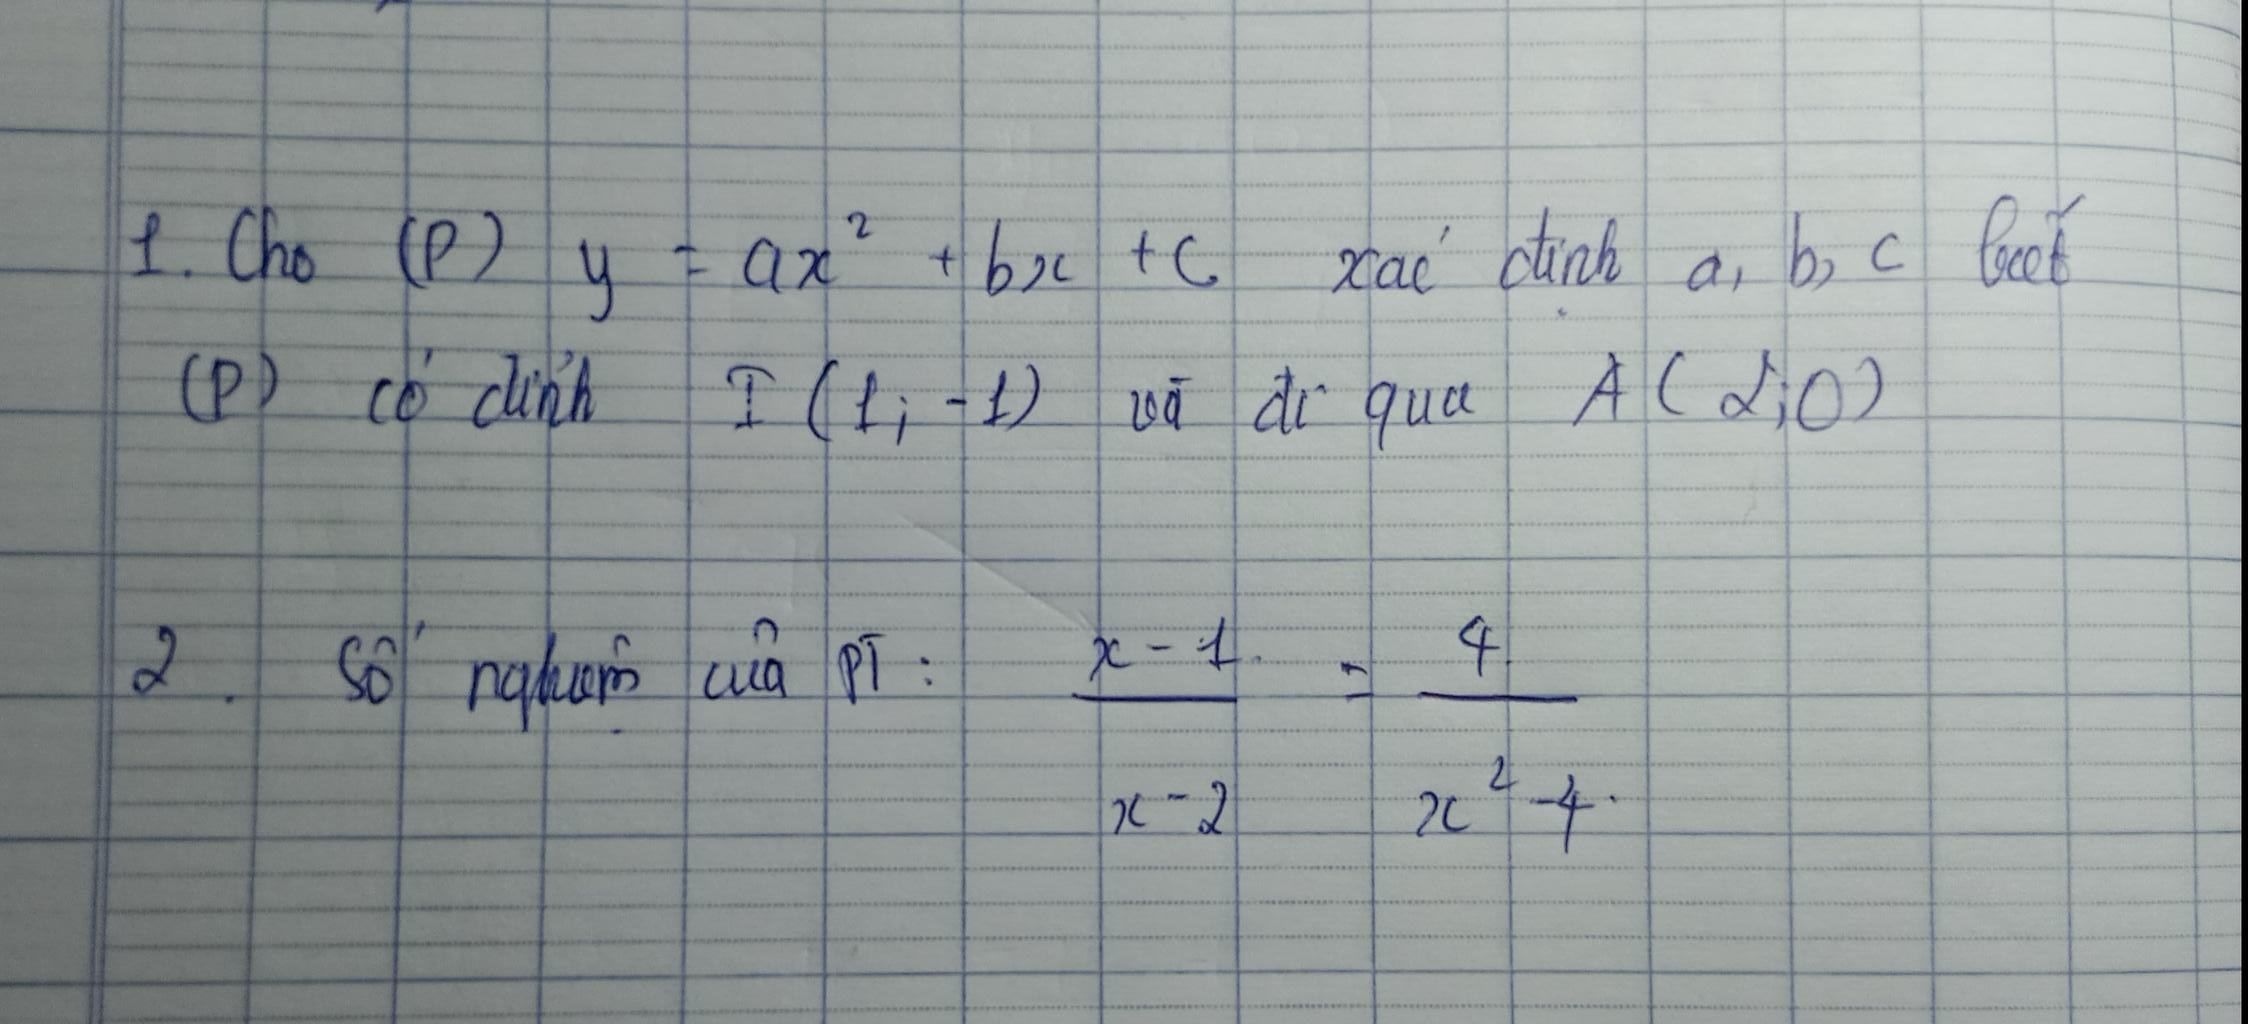 1. Cho (P) y = ax² + bx + c xác định a, b, c biết
(P) có đỉnh I (1; -1) và đi qua A (2; 0)
2. Số nghiệm của PT: \frac{x-1}{x-2} = \frac{4}{x²-4}